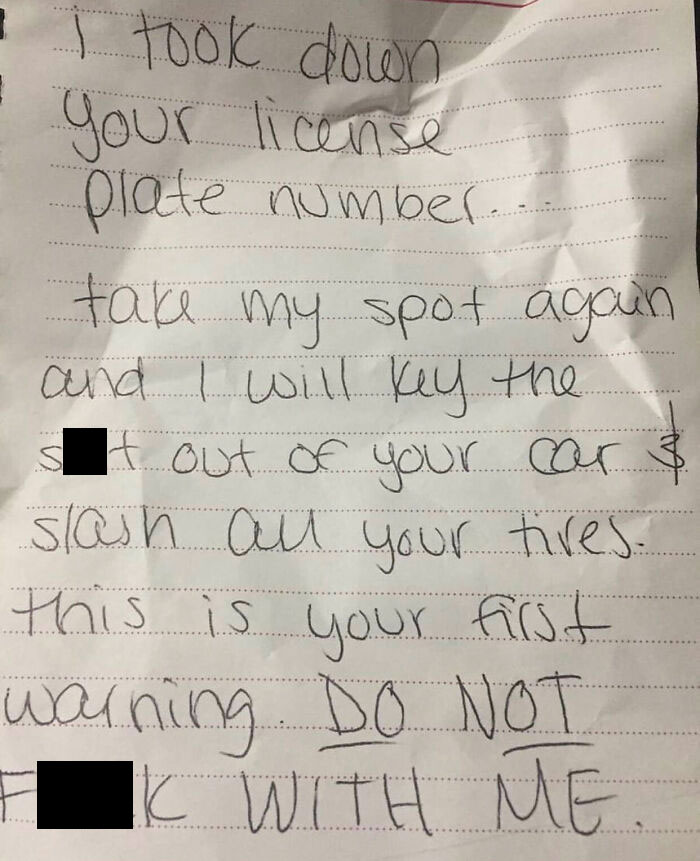 i took down
your license
plate number...
take my spot again
and I will key the
s t out of your car &
slash all your tires.
this is your first
warning. DO NOT
F K WITH ME.